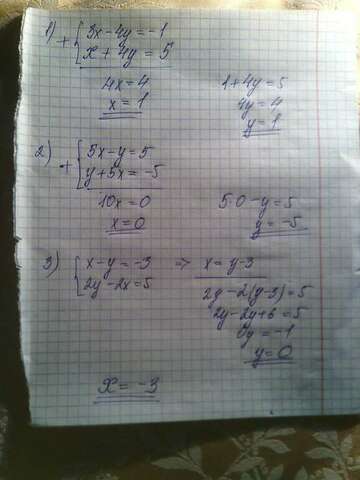 1) + { 3x - 4y = -1
x + 4y = 5
4x = 4
x = 1
1 + 4y = 5
4y = 4
y = 1
2) + { 5x - y = 5
y + 5x = -5
10x = 0
x = 0
5·0 - y = 5
y = -5
3) { x - y = -3 => x = y - 3
2y - 2x = 5
2y - 2(y-3) = 5
2y - 2y + 6 = 5
0y = -1
y = 0
x = -3